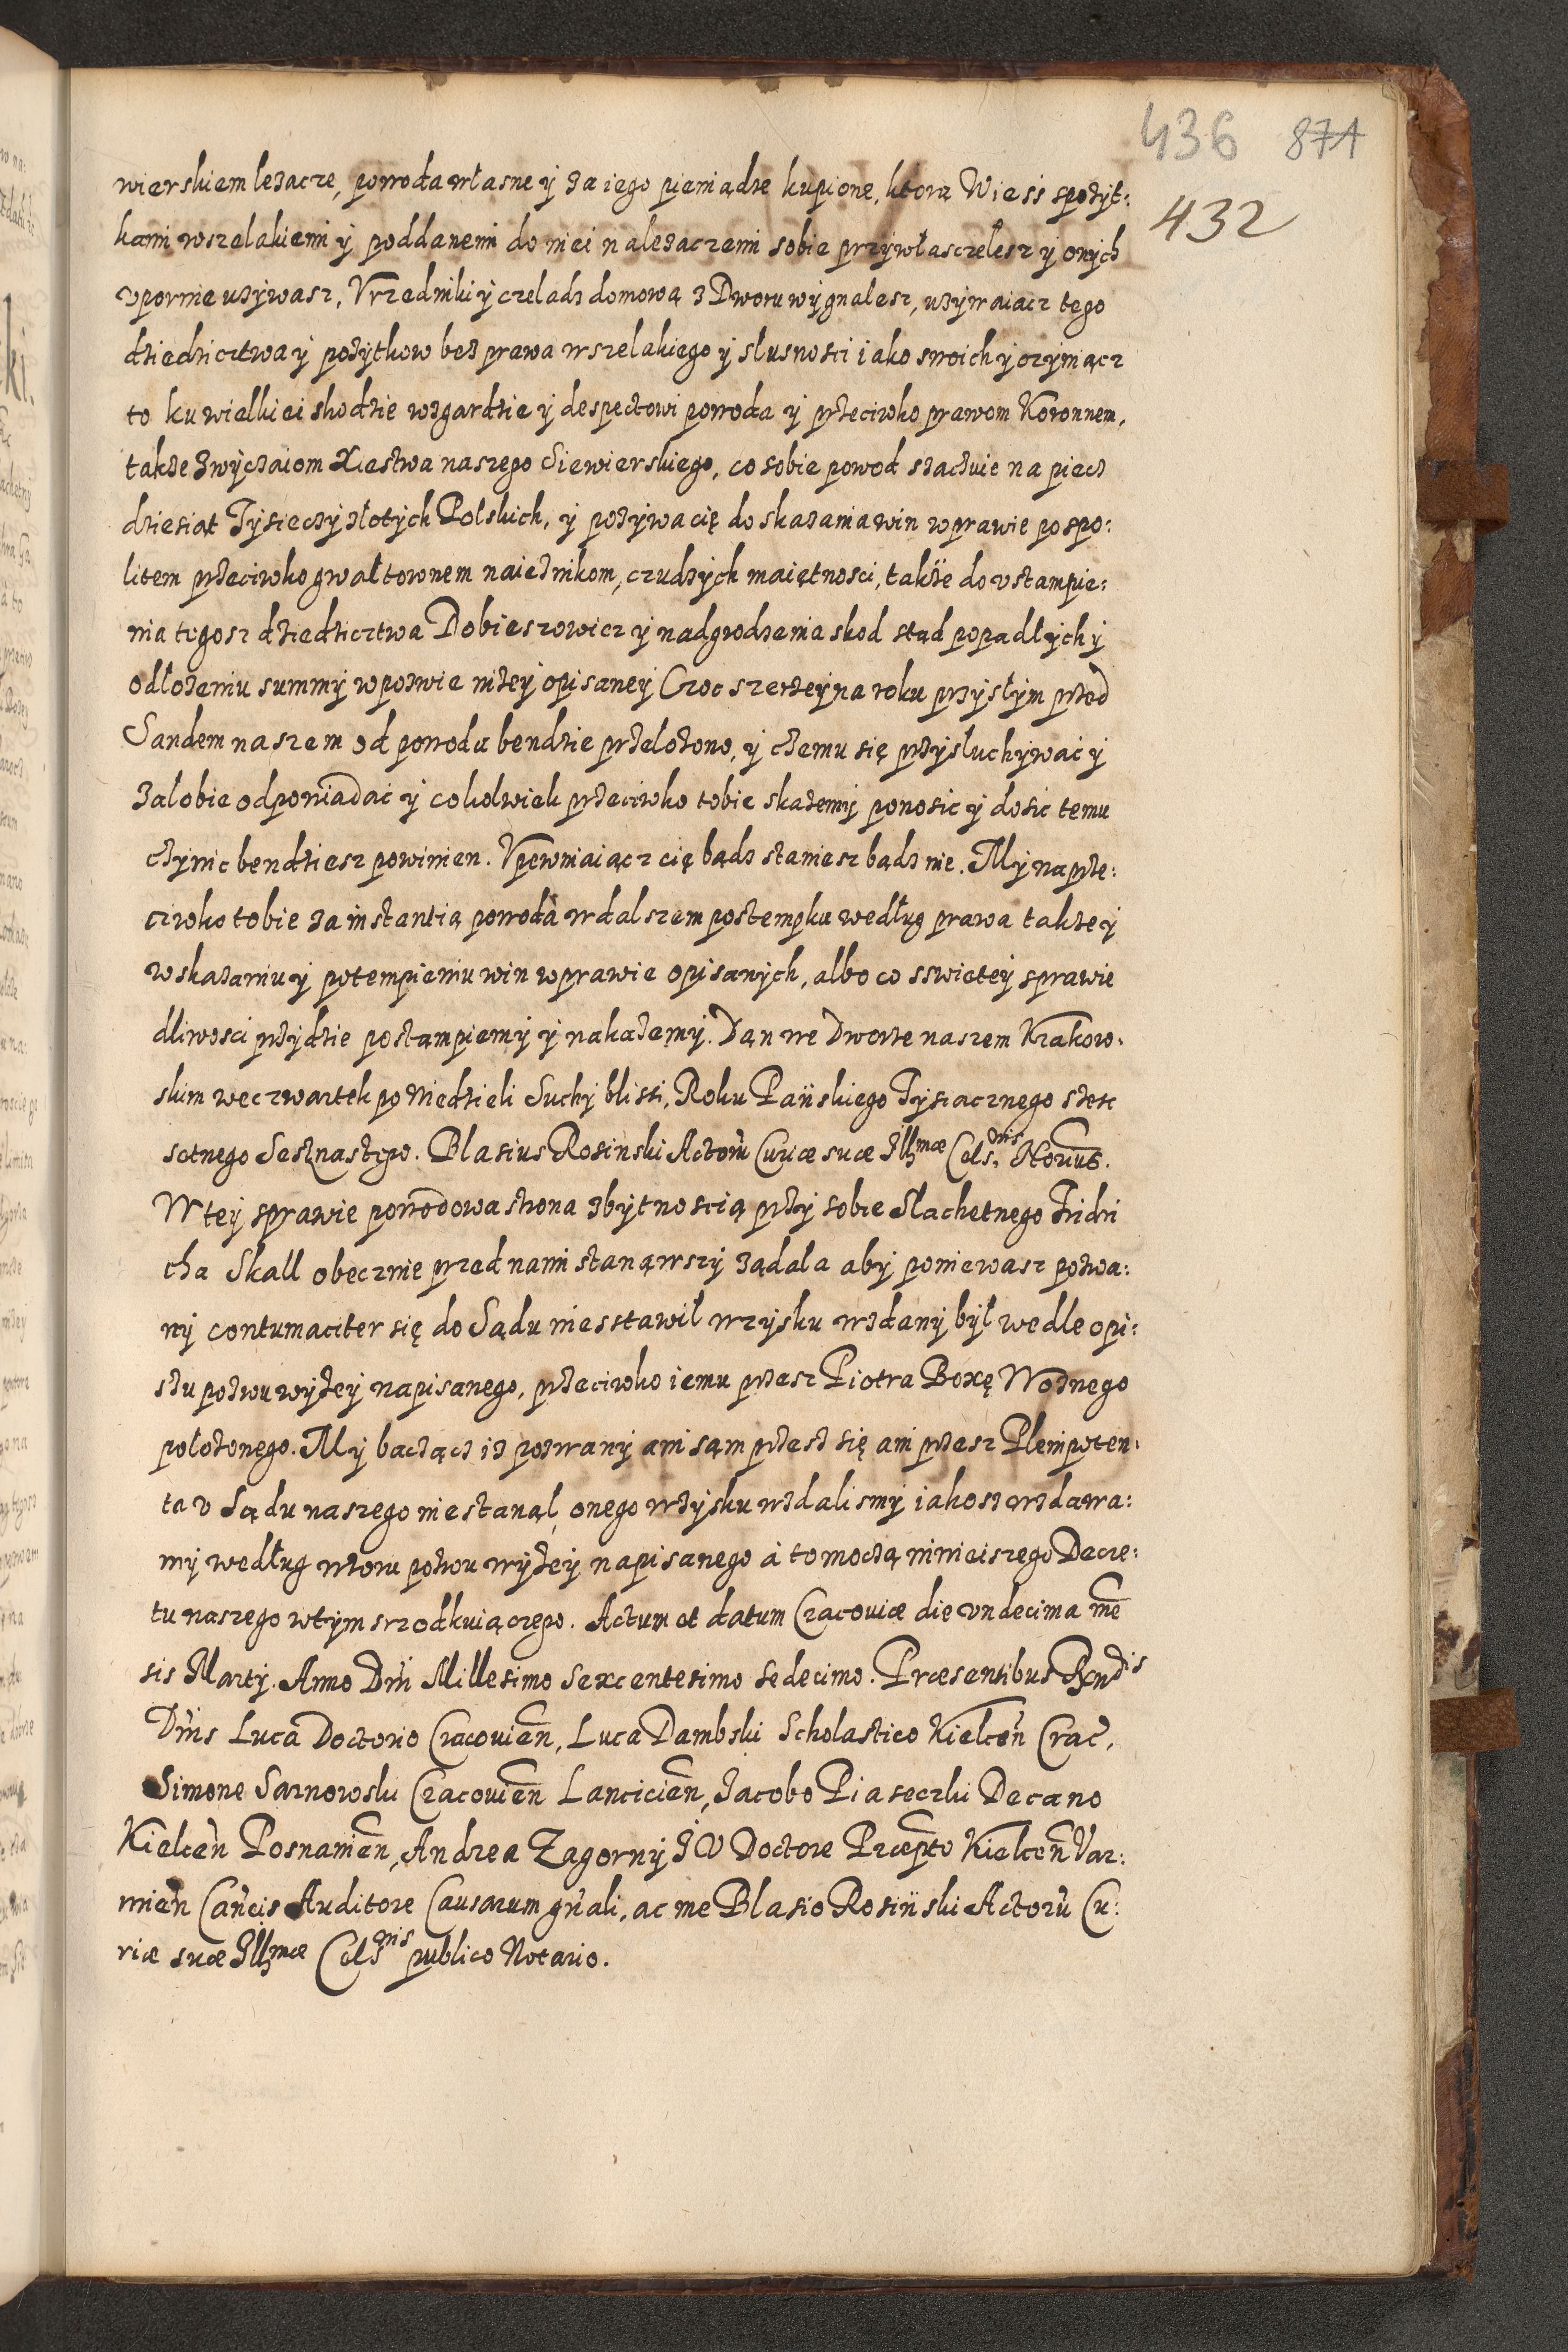 436 871
432
wierskiem leżącze, powoda własne y za iego pieniądze kupione, ktorą Wieśś spożyt:
kami wszelakiemi y poddanemi do niei należaczemi sobie przywłasczelesz y onych
vpornie używasz, Vrzedniki y czeladz domową z Dworu wygnalesz, używaiacz tego
dziedzicztwa y pożytkow bez prawa wszelakiego y słusnosci iako swoich y czyniącz
to ku wielkiei skodzie wzgardzie y despectowi powoda y przeciwko prawom Koronnem,
także zwyczaiom Xiestwa naszego Siewierskiego, co sobie powod szaczuie na piecz
dziesiąt Tysieczy złotych Polskich, y pożywa cię do skazania win w prawie pospo:
litem przeciwko gwałtownem naieznikom, czudzych maiętnosci, także do vstampie:
nia tegosz dziedzicztwa Dobieszowicz y nadgrodzenia skod stąd popadłych y
odłożeniu summy w pozwie niżey opisaney Czoc szerzey na roku przysłym przed
Sandem naszem od powoda bendzie przełożono, y czemu się przysłuchywać y
żałobie odpowiadać y cokolwiek przeciwko tobie skażemy ponosic y dosic temu
czynic bendziesz powinien. Vpewniaiącz cię bądz staniesz bądz nie. My na prze:
ciwko tobie za instantią powoda w dalszem postempku według prawa także y
w skazaniu y potempieniu win w prawie opisanych, albo co s swietey sprawie
dliwosci przydzie postampiemy y nakażemy. Dan we Dworze naszem Krakow:
skim we czwartek po Niedzieli Suchy blisti, Roku Pańskiego Tysiacznego szesc
setnego Sesznastego. Blasius Rosinski Actorū Curiæ suæ Illmæ Cels:nis Notarius.
W tey sprawie powodowa strona z bytnoscią przy sobie Slachetnego Fridri
cha Skall obecznie przed nami stanąwszy żądala aby poniewasz pozwa:
ny contumaciter się do Sądu nie sstawił w zysku wzdany był wedle opi:
szu pozwu wyżey napisanego, przeciwko iemu przesz Piotra Boxę Woznego
położonego. My bacząci iż pozwany ani sąm przesz się ani przesz Plenipoten:
ta v Sądu naszego nie stanął, onego w zysku wzdalismy iakosz wzdawa:
my według wzoru pozwu wyżey napisanego á to moczą ninieiszego Decre:
tu naszego w tym srzodkuiączego. Actum et datum Cracoviæ die vndecima mē
sis Martÿ. Anno Dnī Millesimo Sexcentesimo sedecimo. Præsentibus Rendis
Dnīs Luca Doctorio Cracouień, Luca Dambski Scholastico Kielceń Crac̄,
Simone Sarnowski Cracouień Lancicień, Jacobo Piaseczki Decano
Kielceń Posnanień, Andrea Zagorny I V Doctore Præpto Kielceń Var:
mień Cancis Auditore Causarum gnāli, ac me Blasio Rosiński Actorū Cu:
riæ suæ Illmæ Celsnis publico Notario.